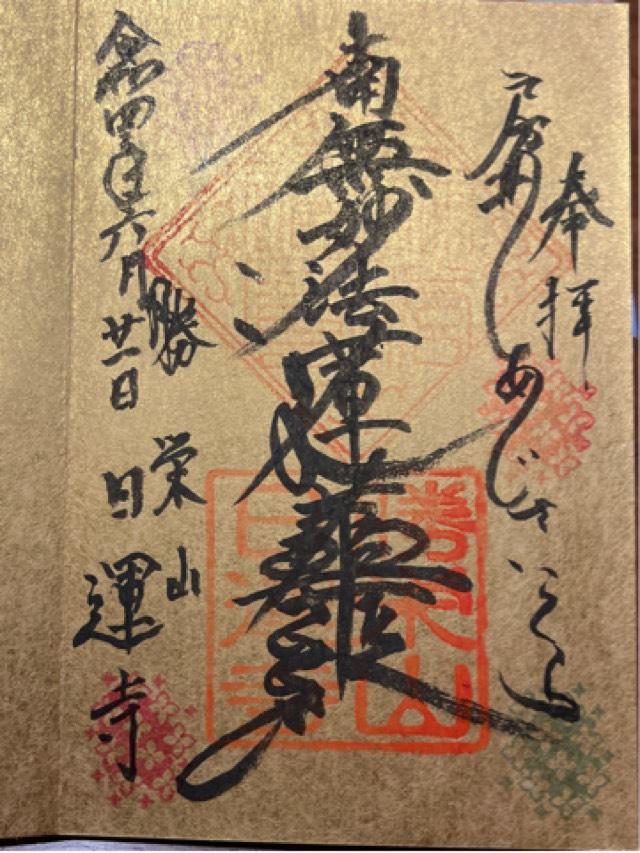 奉拝
房州あじさいでら
南無妙法蓮華経
勝栄山
日運寺
勝栄山
令和四年六月廿一日
日運寺